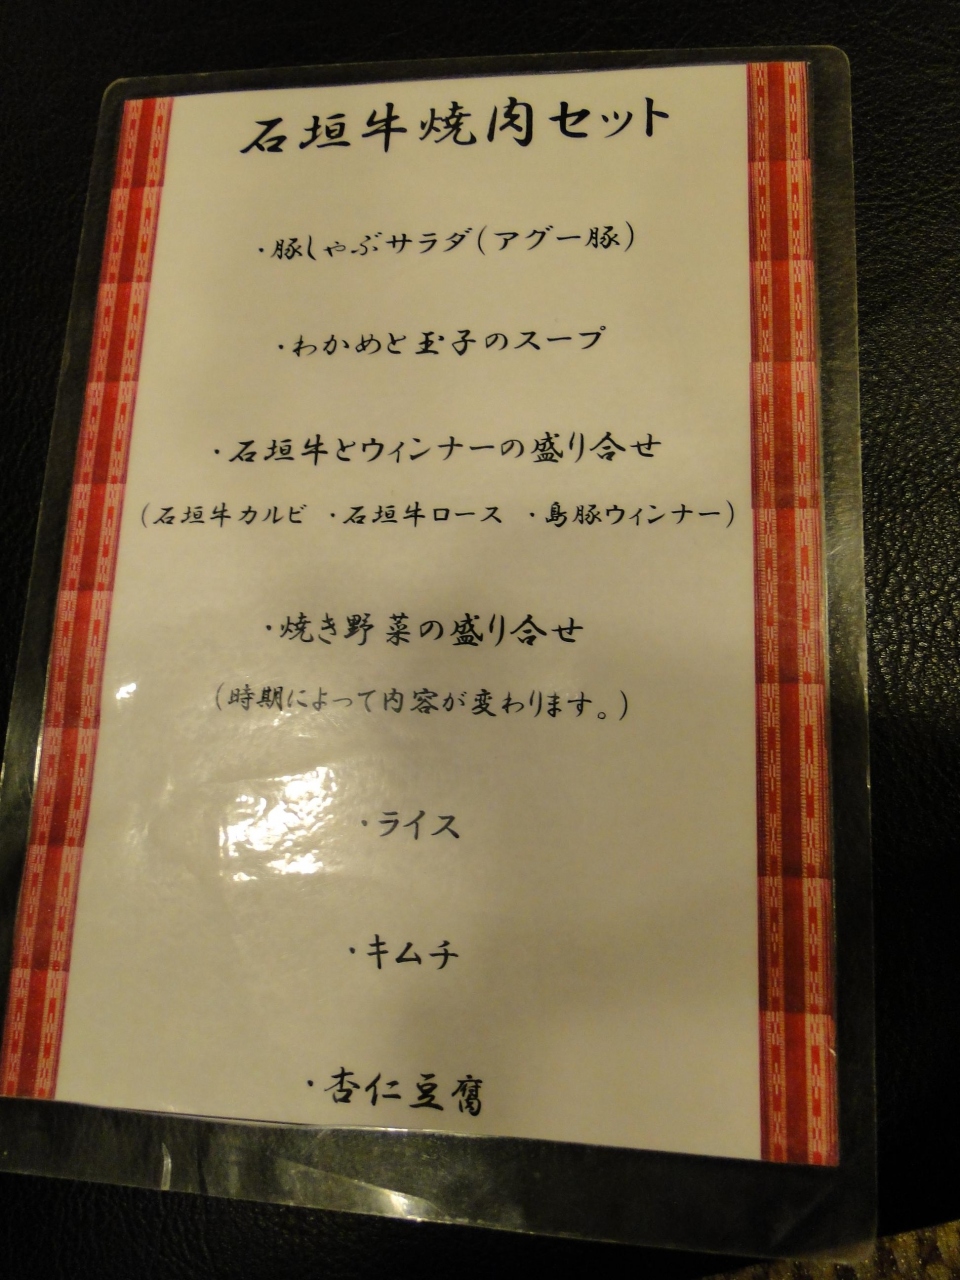 石垣牛焼肉セット
・豚しゃぶサラダ(アグー豚)
・わかめと玉子のスープ
・石垣牛とウィンナーの盛り合せ
(石垣牛カルビ ・石垣牛ロース ・島豚ウィンナー)
・焼き野菜の盛り合せ
(時期によって内容が変わります。)
・ライス
・キムチ
・杏仁豆腐